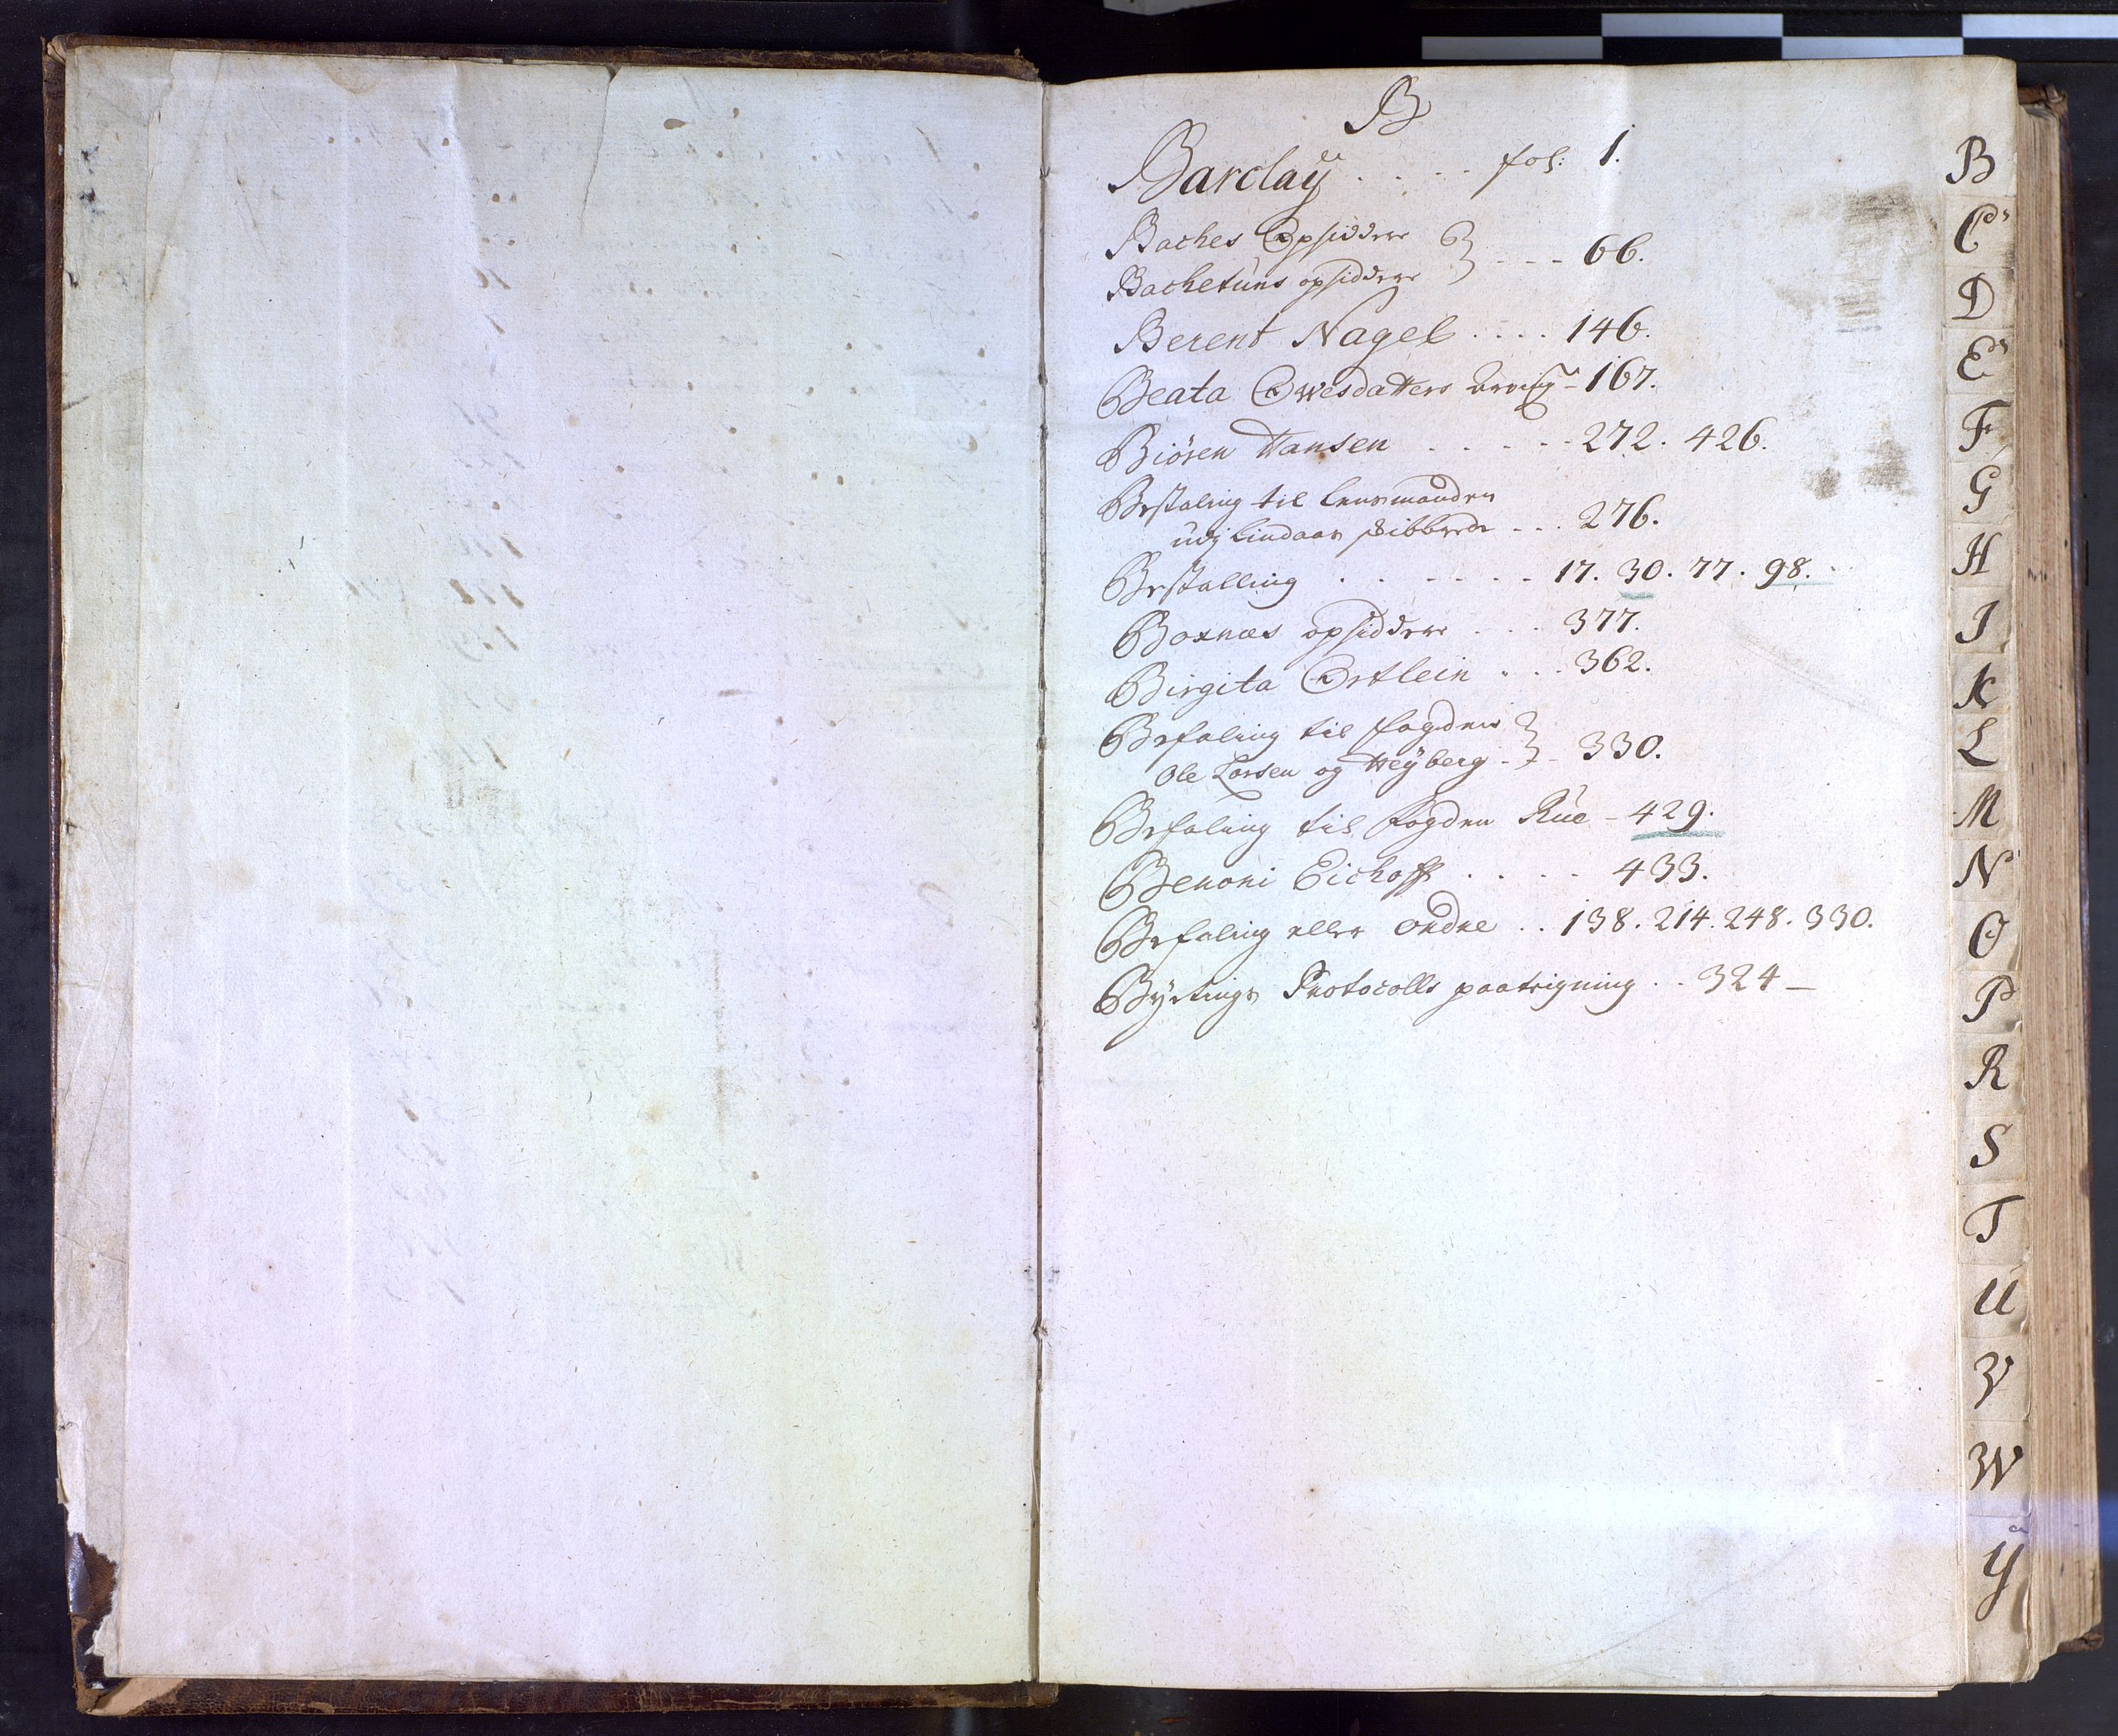 B
Barclaÿ . . . . fol: 1.
Baches Opsiddere
Bachetuns opsiddere - - - 66.
Berent Nagel . . . . 146.
Beata Owesdatters - 167.
Biören Hansen . . . . . 272. 426.
Bestaling til Lensmanden
udj Lindaas Skibbrede - . . 276.
Bestalling . . . . . . 17. 30. 77. 98.
Boxnæs opsiddere . . . 377.
Birgita Ortlein . . . 362.
Befaling til fogderne
Ole Larsen og Heÿberg - - 330.
Befaling til fogden Rue - 429.
Benoni Eichoff . . . . 433.
Befaling eller Ordre . . 138. 214. 248. 330.
Bÿtings Protocolls paategning . . 324 -
B
C
D
E
F
G
H
I
K
L
M
N
O
P
R
S
T
U
V
W
Y